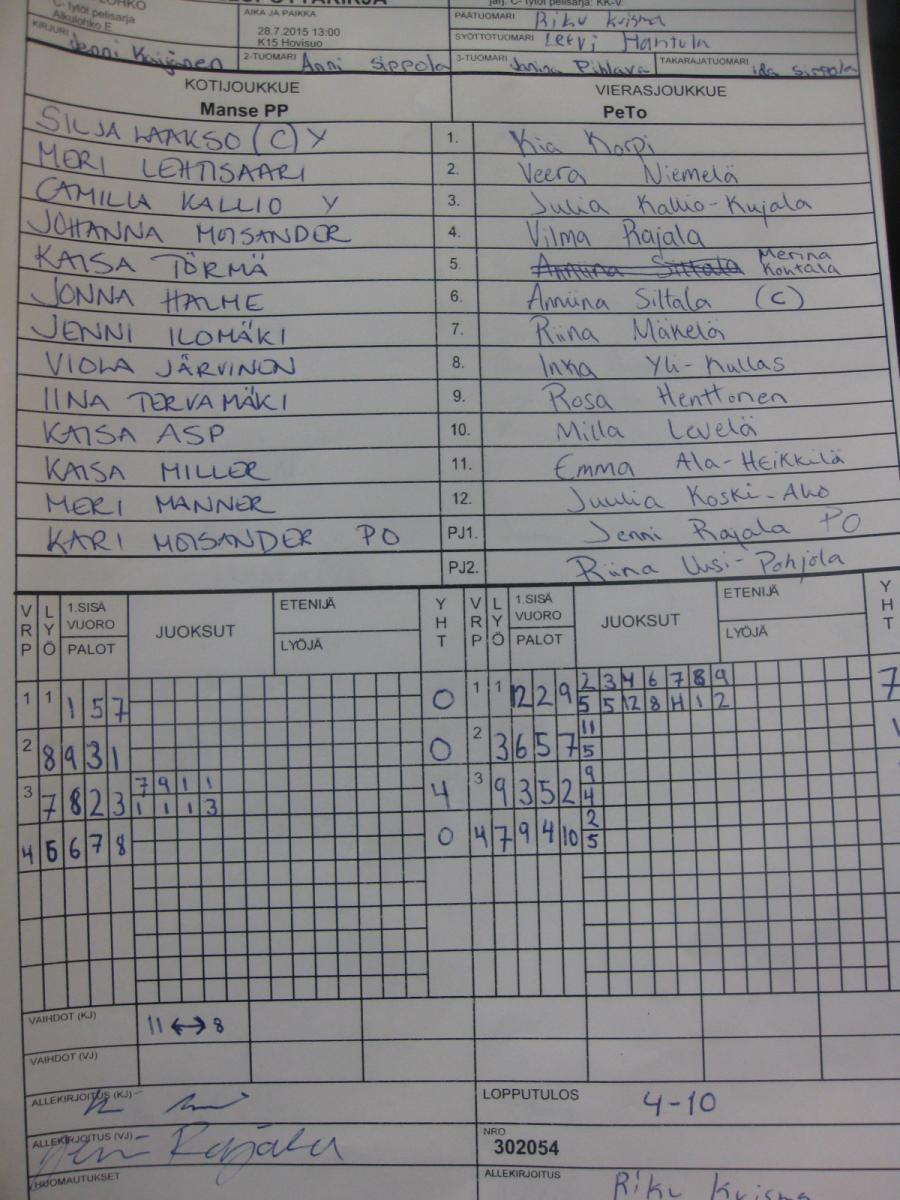 C- tytöt pelisarja
Alkulohko E
AIKA JA PAIKKA
28.7.2015 13:00
K15 Hovisuo
PÄÄTUOMARI Riku Krisma
SYÖTTÖTUOMARI Leevi Hantula
KIRJURI Jenni Kaijanen
2-TUOMARI Anni Sippola
3-TUOMARI Janina Pihlava
TAKARAJATUOMARI Ida Sippola
KOTIJOUKKUE VIERASJOUKKUE
Manse PP PeTo
SILJA LAAKSO (C) Y 1. Kia Korpi
MERI LEHTISAARI 2. Veera Niemelä
CAMILLA KALLIO Y 3. Julia Kallio-Kujala
JOHANNA MOISANDER 4. Vilma Rajala
KAISA TÖRMÄ 5. Anniina Siltala Merina Kontala
JONNA HALME 6. Anniina Siltala (C)
JENNI ILOMÄKI 7. Riina Mäkelä
VIOLA JÄRVINEN 8. Inka Yli-Kullas
IINA TERVAMÄKI 9. Rosa Henttonen
KAISA ASP 10. Milla Levelä
KAISA MILLER 11. Emma Ala-Heikkilä
MERI MANNER 12. Juulia Koski-Aho
KARI MOISANDER PO PJ1. Jenni Rajala PO
PJ2. Riina Uusi-Pohjola
VRP LYÖ 1.SISÄ VUORO PALOT JUOKSUT ETENIJÄ LYÖJÄ YHT VRP LYÖ 1.SISÄ VUORO PALOT JUOKSUT ETENIJÄ LYÖJÄ YHT
2 3 4 6 7 8 9
1 1 1 5 7 0 1 1 12 2 9 5 5 12 8 11 1 2 7
11
2 8 9 3 1 0 2 3 6 5 7 5
7 9 1 1 9
3 7 8 2 3 1 1 1 3 4 3 9 3 5 2 4
2
4 5 6 7 8 0 4 7 9 4 10 5
VAIHDOT (KJ) 11 ↔ 8
VAIHDOT (VJ)
ALLEKIRJOITUS (KJ)
LOPPUTULOS 4-10
ALLEKIRJOITUS (VJ) Jenni Rajala
NRO
302054
HUOMAUTUKSET
ALLEKIRJOITUS Riku Krisma